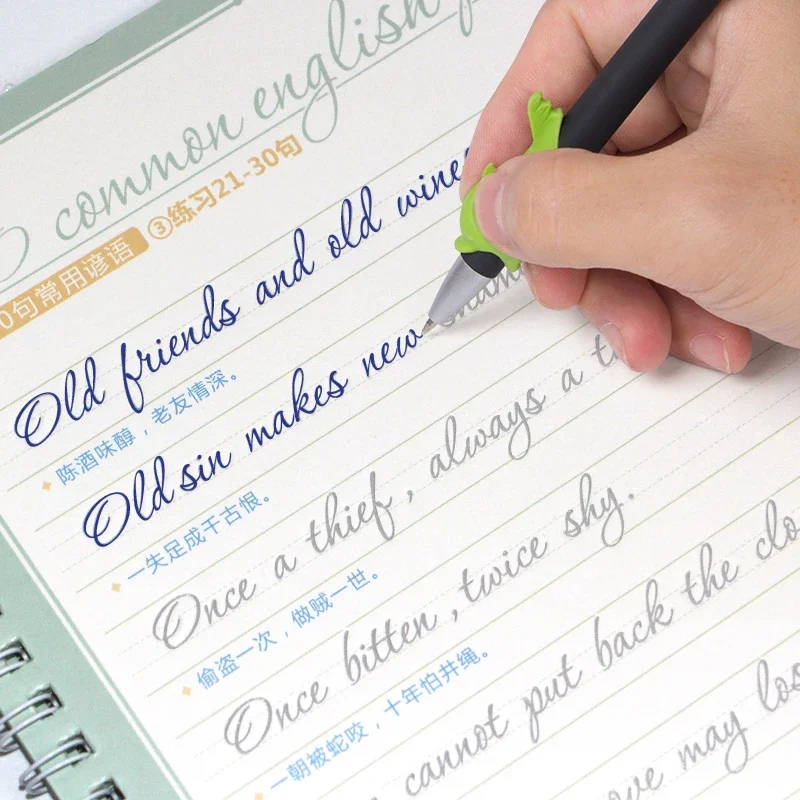 common english
0句常用谚语 ③练习21-30句
Old friends and old wines
陈酒味醇，老友情深。
Old sin makes new shame
一失足成千古恨。
Once a thief, always a
偷盗一次，做贼一世。
Once bitten, twice shy.
一朝被蛇咬，十年怕井绳。
cannot put back the
may